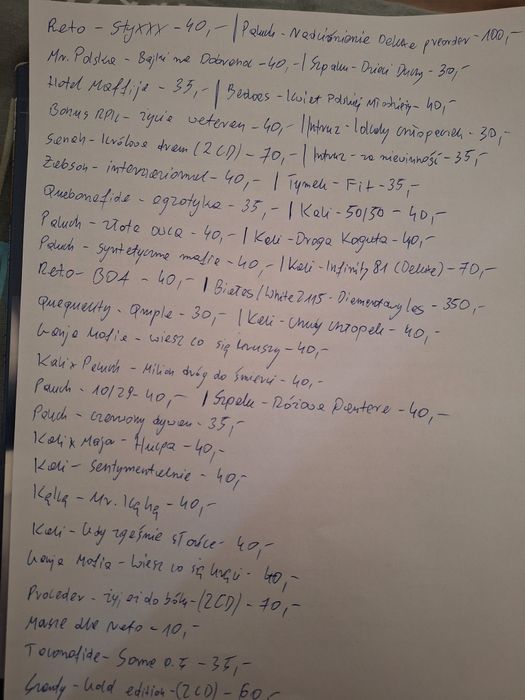 Reto - StyXXX - 40,- | Paluch - Nadciśnienie Deluxe preorder - 100,-
Mr. Polska - Bajki na Dobranoc - 40,- | Szpaku - Dzieci Duchy - 30,-
Hotel Maffija - 35,- | Bedoes - Kwiat Polskiej Młodzieży - 40,-
Bonus RPK - życie weteran - 40,- | Intruz - łobuzy chłopięcych - 30,-
Sarah - królowa dram (2CD) - 70,- | Intruz - za niewinność - 35,-
Żabson - internaziomal - 40,- | Tymek - Fit - 35,-
Quebonafide - egzotyka - 35,- | Kali - 50/50 - 40,-
Paluch - złota owca - 40,- | Kali - Droga Koguta - 40,-
Paluch - syntetyczna mafia - 40,- | Kali - Infinity 81 (Deluxe) - 70,-
Reto - BOA - 40,- | Białas/White 2115 - Diamentowy las - 350,-
Quequality - Ample - 30,- | Kali - Chudy chłopak - 40,-
Ganja Mafia - wiesz co się kruszy - 40,-
Kali x Paluch - Milion dróg do śmierci - 40,-
Paluch - 10/29 - 40,- | Szpaku - Różowa Pantera - 40,-
Paluch - czerwony dywan - 35,-
Kali x Maja - Hucpa - 40,-
Kali - Sentymentalnie - 40,-
Kękę - Mr. Kękę - 40,-
Kali - Gdy zgaśnie słońce - 40,-
Ganja Mafia - Wiesz co się kręci - 40,-
Proceder - żyj aż do bólu - (2CD) - 70,-
Masze dla Neto - 10,-
Taconafide - Soma 0.5 - 35,-
- Gold edition - (2CD) - 60,-